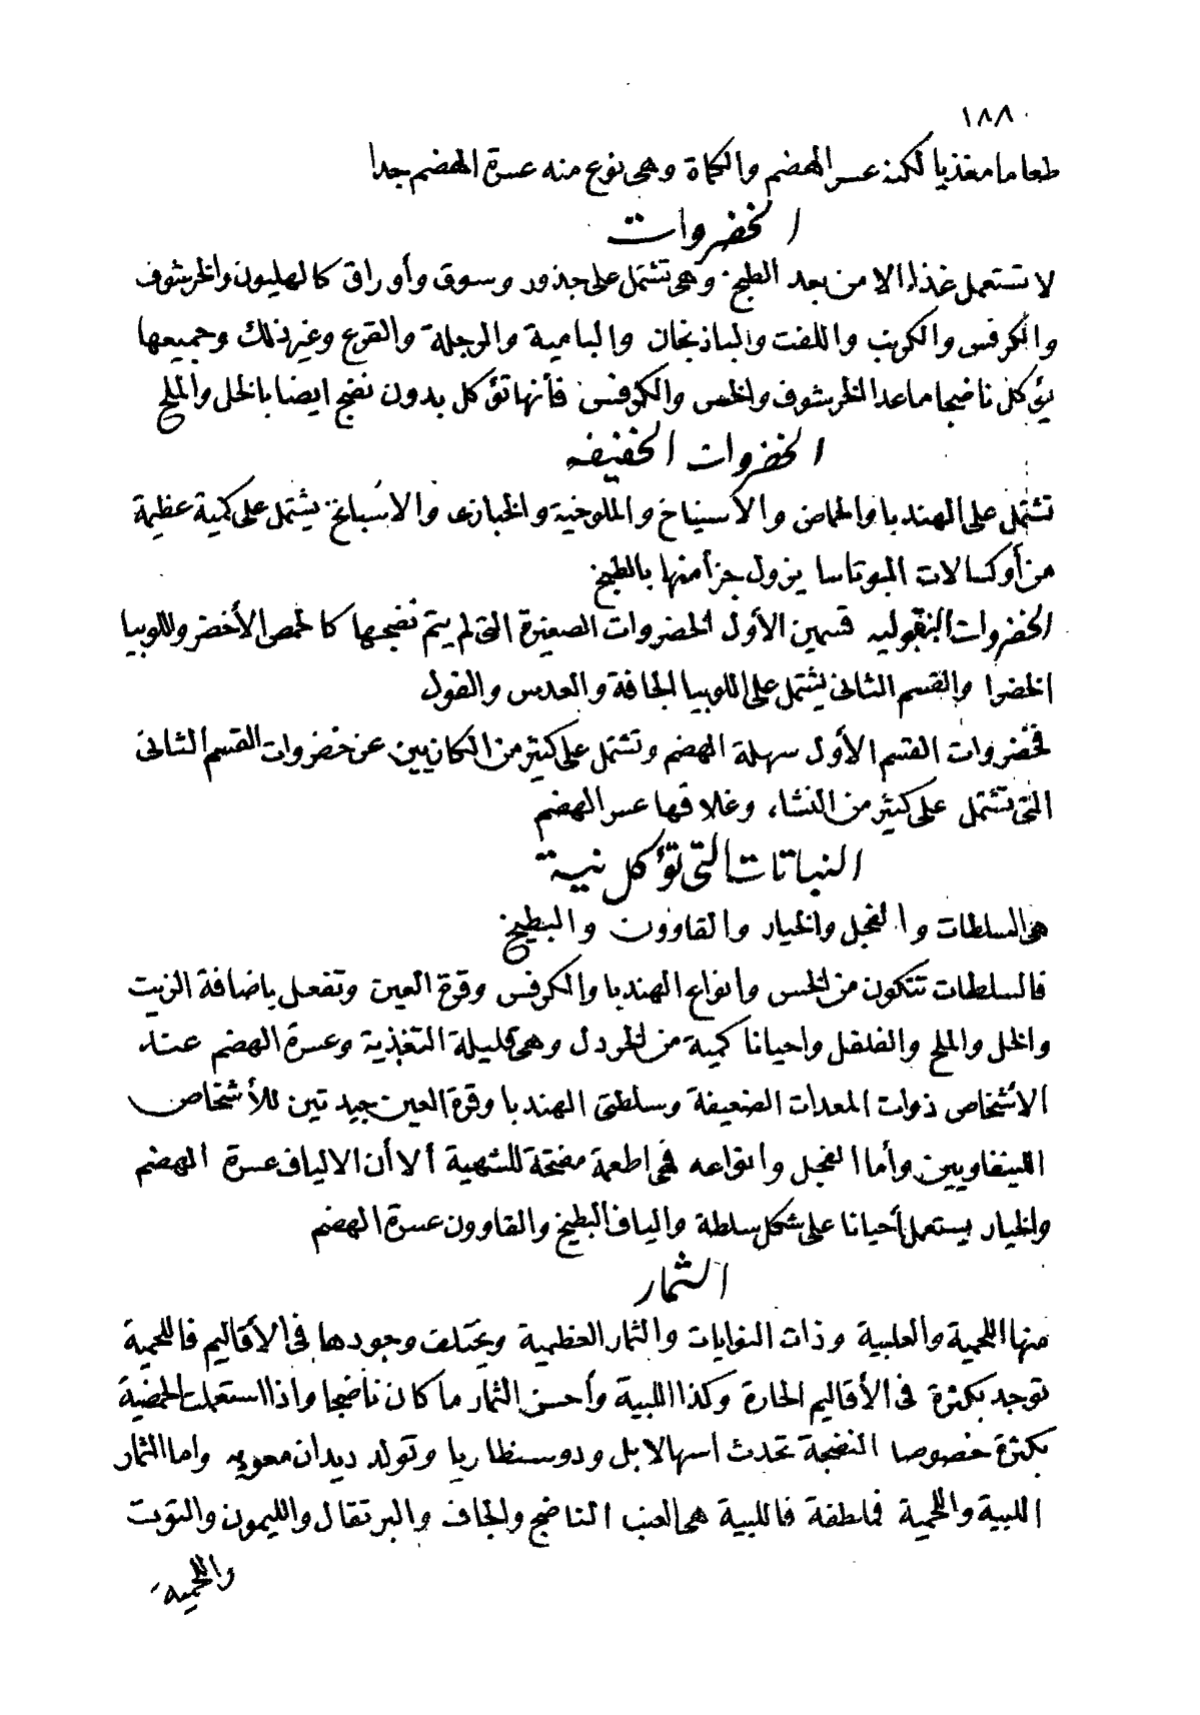 ١٨٨
طعاما مغذيا لكنه عسر الهضم والكماة وهى نوع منه عسرة الهضم جدا
الخضروات
لا تستعمل غذاء الا من بعد الطبخ وهى تشتمل على جذور وسوق وأوراق كالهليون والخرشوف
والكرفس والكرنب واللفت والباذنجان والبامية والرجلة والقرع وغير ذلك وجميعها
يؤكل ناضجا ماعدا الخرشوف والخس والكرفس فأنها تؤكل بدون نضج ايضا بالخل والملح
الخضروات الخفيفه
تشتمل على الهندبا والحماض والأسنياخ والملوخية والخبازى والاسبانخ يشتمل على كمية عظيمة
من أوكسالات البوتاسا يزول جزأ منها بالطبخ
الخضروات البقوليه قسمين الأول الخضروات الصغيرة التى لم يتم نضجها كالحمص الأخضر واللوبيا
الخضرا والقسم الثانى يشتمل على اللوبيا الجافة والعدس والفول
فخضروات القسم الأول سهلة الهضم وتشتمل على كثير من الكازيين عن خضروات القسم الثانى
التى تشتمل على كثير من النشاء وغلافها عسر الهضم
النباتات التى تؤكل نية
هى السلطات والفجل والخيار والقاوون والبطيخ
فالسلطات تتكون من الخس وانواع الهندبا والكرفس وقرة العين وتفعل باضافة الزيت
والخل والملح والفلفل واحيانا كمية من الخردل وهى قليلة التغذية وعسرة الهضم عند
الاشخاص ذوات المعدات الضعيفة وسلطتى الهندبا وقرة العين جيدتين للأشخاص
اللينفاويين وأما الفجل وانواعه فهى اطعمة مفتحة للشهية ألا أن الالياف عسرة الهضم
والخيار يستعمل أحيانا على شكل سلطة والياف البطيخ والقاوون عسرة الهضم
الثمار
منها اللحمية والعلبية وذات النوايات والثمار العظمية ويختلف وجودها فى الأقاليم فاللحمية
توجد بكثرة فى الأقاليم الحارة وكذا اللبية وأحسن الثمار ما كان ناضجا واذا استعملت الحمضية
بكثرة خصوصا الفجة تحدث اسهالا بل ودوسنطاريا وتولد ديدان معويه واما الثمار
اللبية واللحمية فملطفة فاللبية هى العنب الناضج والجاف والبرتقال والليمون والتوت
واللحمية